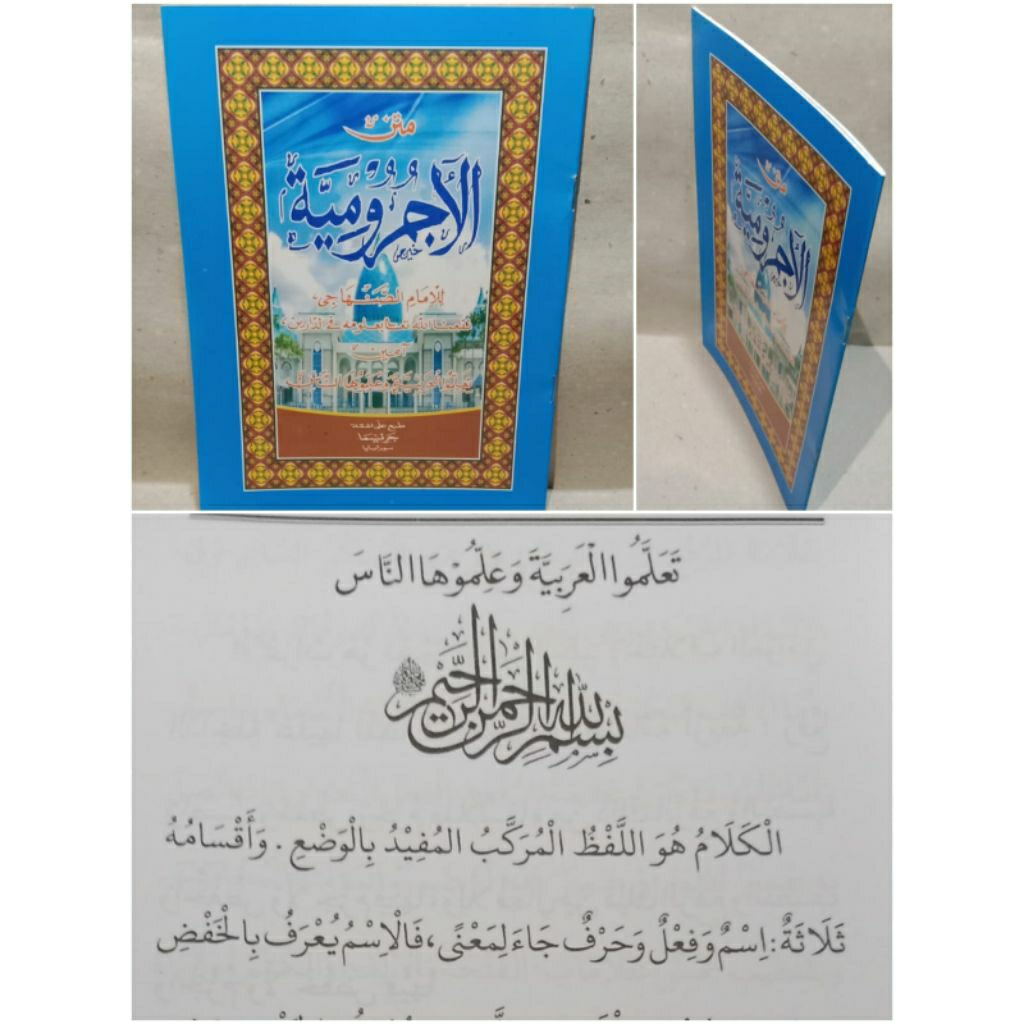 متن
الأجرومية
للإمام الصنهاجي،
نفعنا الله تعالى بعلومه في الدارين،
آمين
تعلموا العربية وعلموها الناس
تَعَلَّمُوا الْعَرَبِيَّةَ وَعَلِّمُوْهَا النَّاسَ
بِسْمِ اللهِ الرَّحْمٰنِ الرَّحِيْمِ
الْكَلَامُ هُوَ اللَّفْظُ الْمُرَكَّبُ المُفِيْدُ بِالْوَضْعِ. وَأَقْسَامُهُ
ثَلَاثَةٌ: اِسْمٌ وَفِعْلٌ وَحَرْفٌ جَاءَ لِمَعْنًى، فَالْاِسْمُ يُعْرَفُ بِالْخَفْضِ